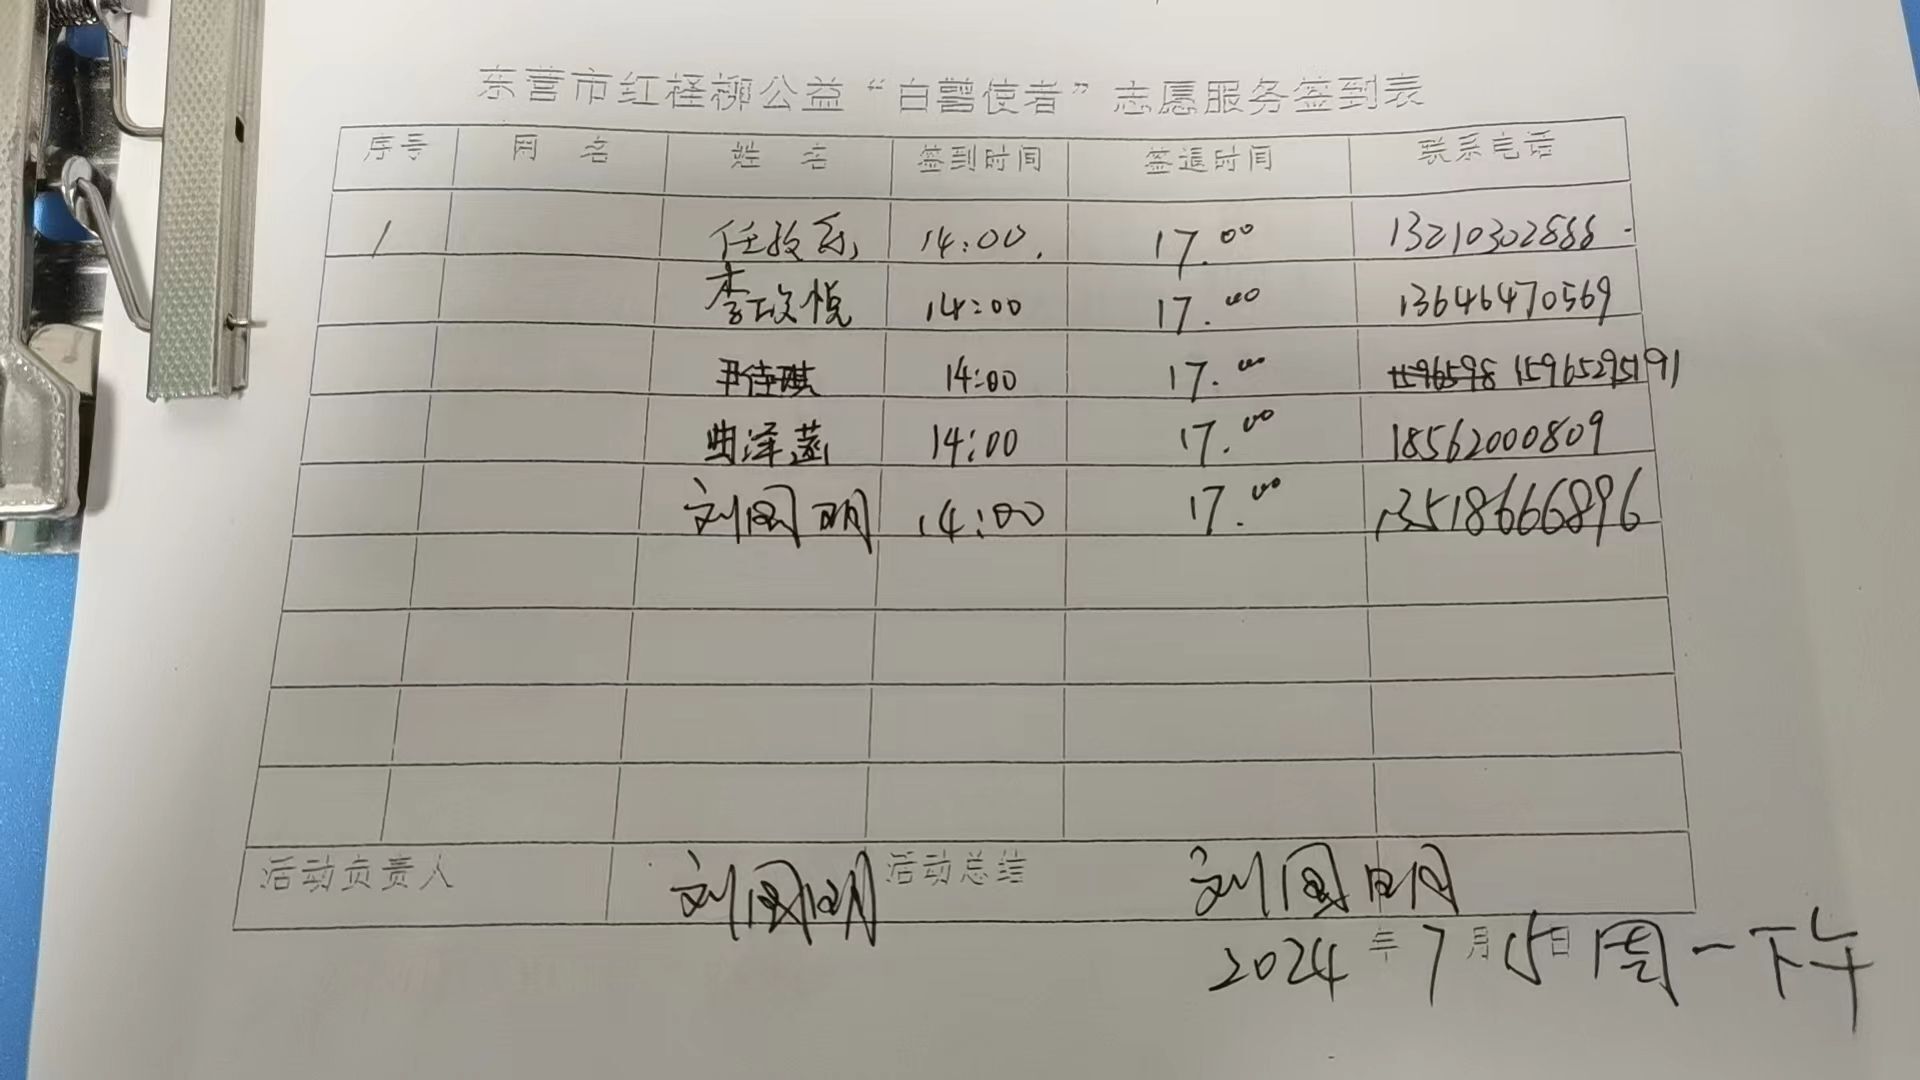 东营市红柽柳公益“白鹭使者”志愿服务签到表
序号 网 名 姓 名 签到时间 签退时间 联系电话
1 14:00 17.00 13210302888
李政悦 14:00 17.00 13646470569
尹佳琪 14:00 17.00 1596598 15965295191
曲泽菡 14:00 17.00 18562000809
刘国明 14:00 17.00 13518666896
活动负责人 刘国明 活动总结 刘国明
2024年7月15日 周一下午